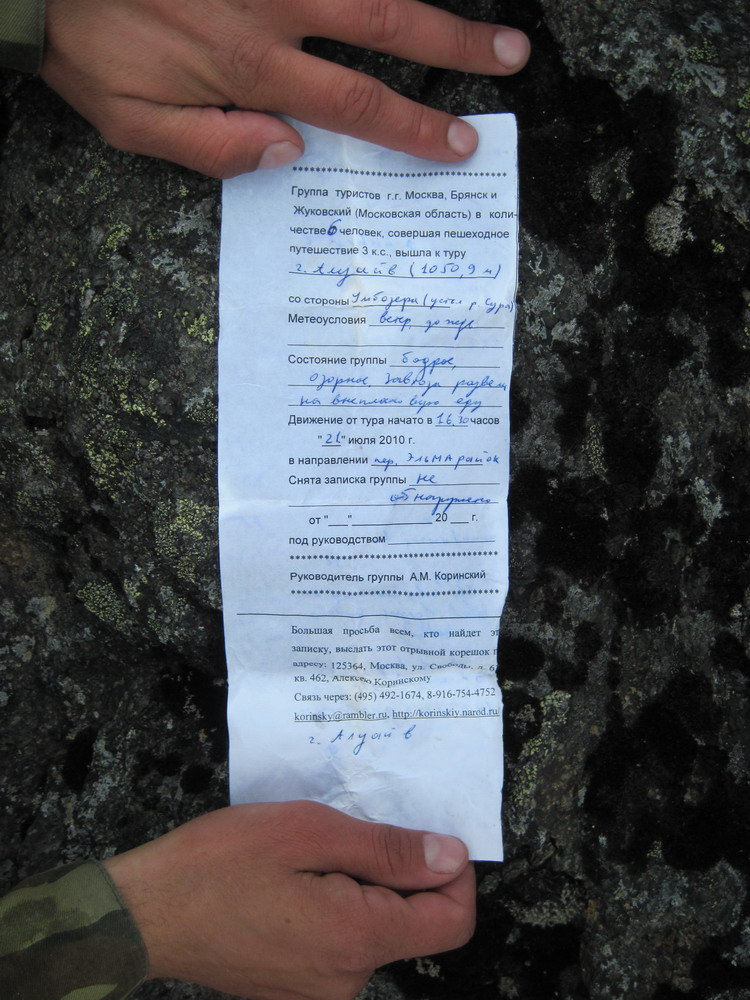 ************************************
Группа туристов г.г. Москва, Брянск и
Жуковский (Московская область) в коли-
честве 6 человек, совершая пешеходное
путешествие 3 к.с., вышла к туру
г. Алуайв (1050,9 м)
со стороны Умбозера (устья р. Сура)
Метеоусловия ветер, дождь
Состояние группы бодрое,
озорное. Завхоза развели
на внеплановую еду
Движение от тура начато в 16.30 часов
"21" июля 2010 г.
в направлении пер. Эльмарайок
Снята записка группы не
обнаружено
от "___"____________ 20 ___ г.
под руководством ________________
************************************
Руководитель группы А.М. Коринский
************************************
Большая просьба всем, кто найдет эт
записку, выслать этот отрывной корешок п
адресу: 125364, Москва, ул. Свободы, д. 6
кв. 462, Алексею Коринскому
Связь через: (495) 492-1674, 8-916-754-4752
korinsky@rambler.ru, http://korinskiy.narod.ru/
г. Алуайв